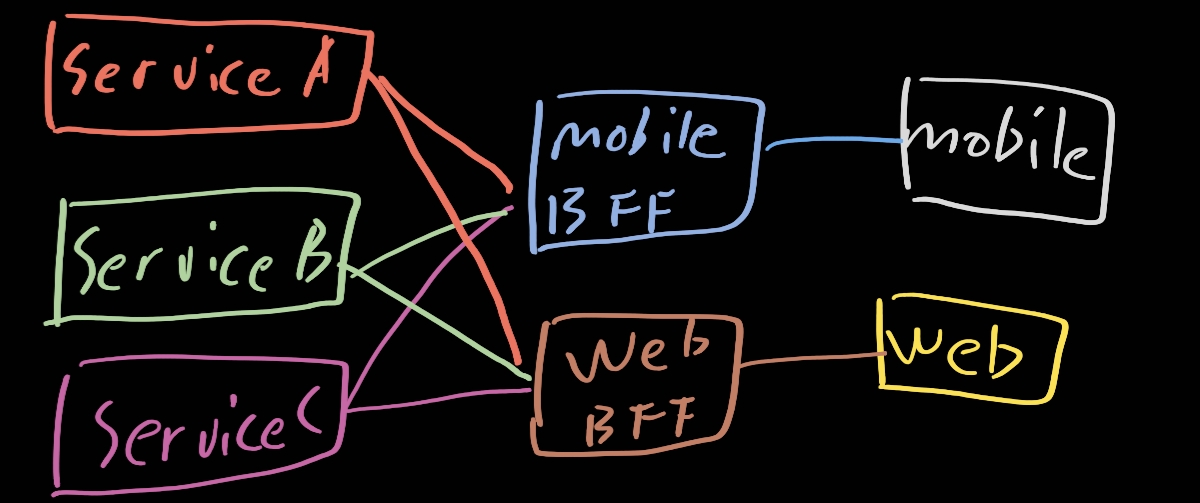 Service A
Service B
Service C
mobile
BFF
Web
BFF
mobile
Web